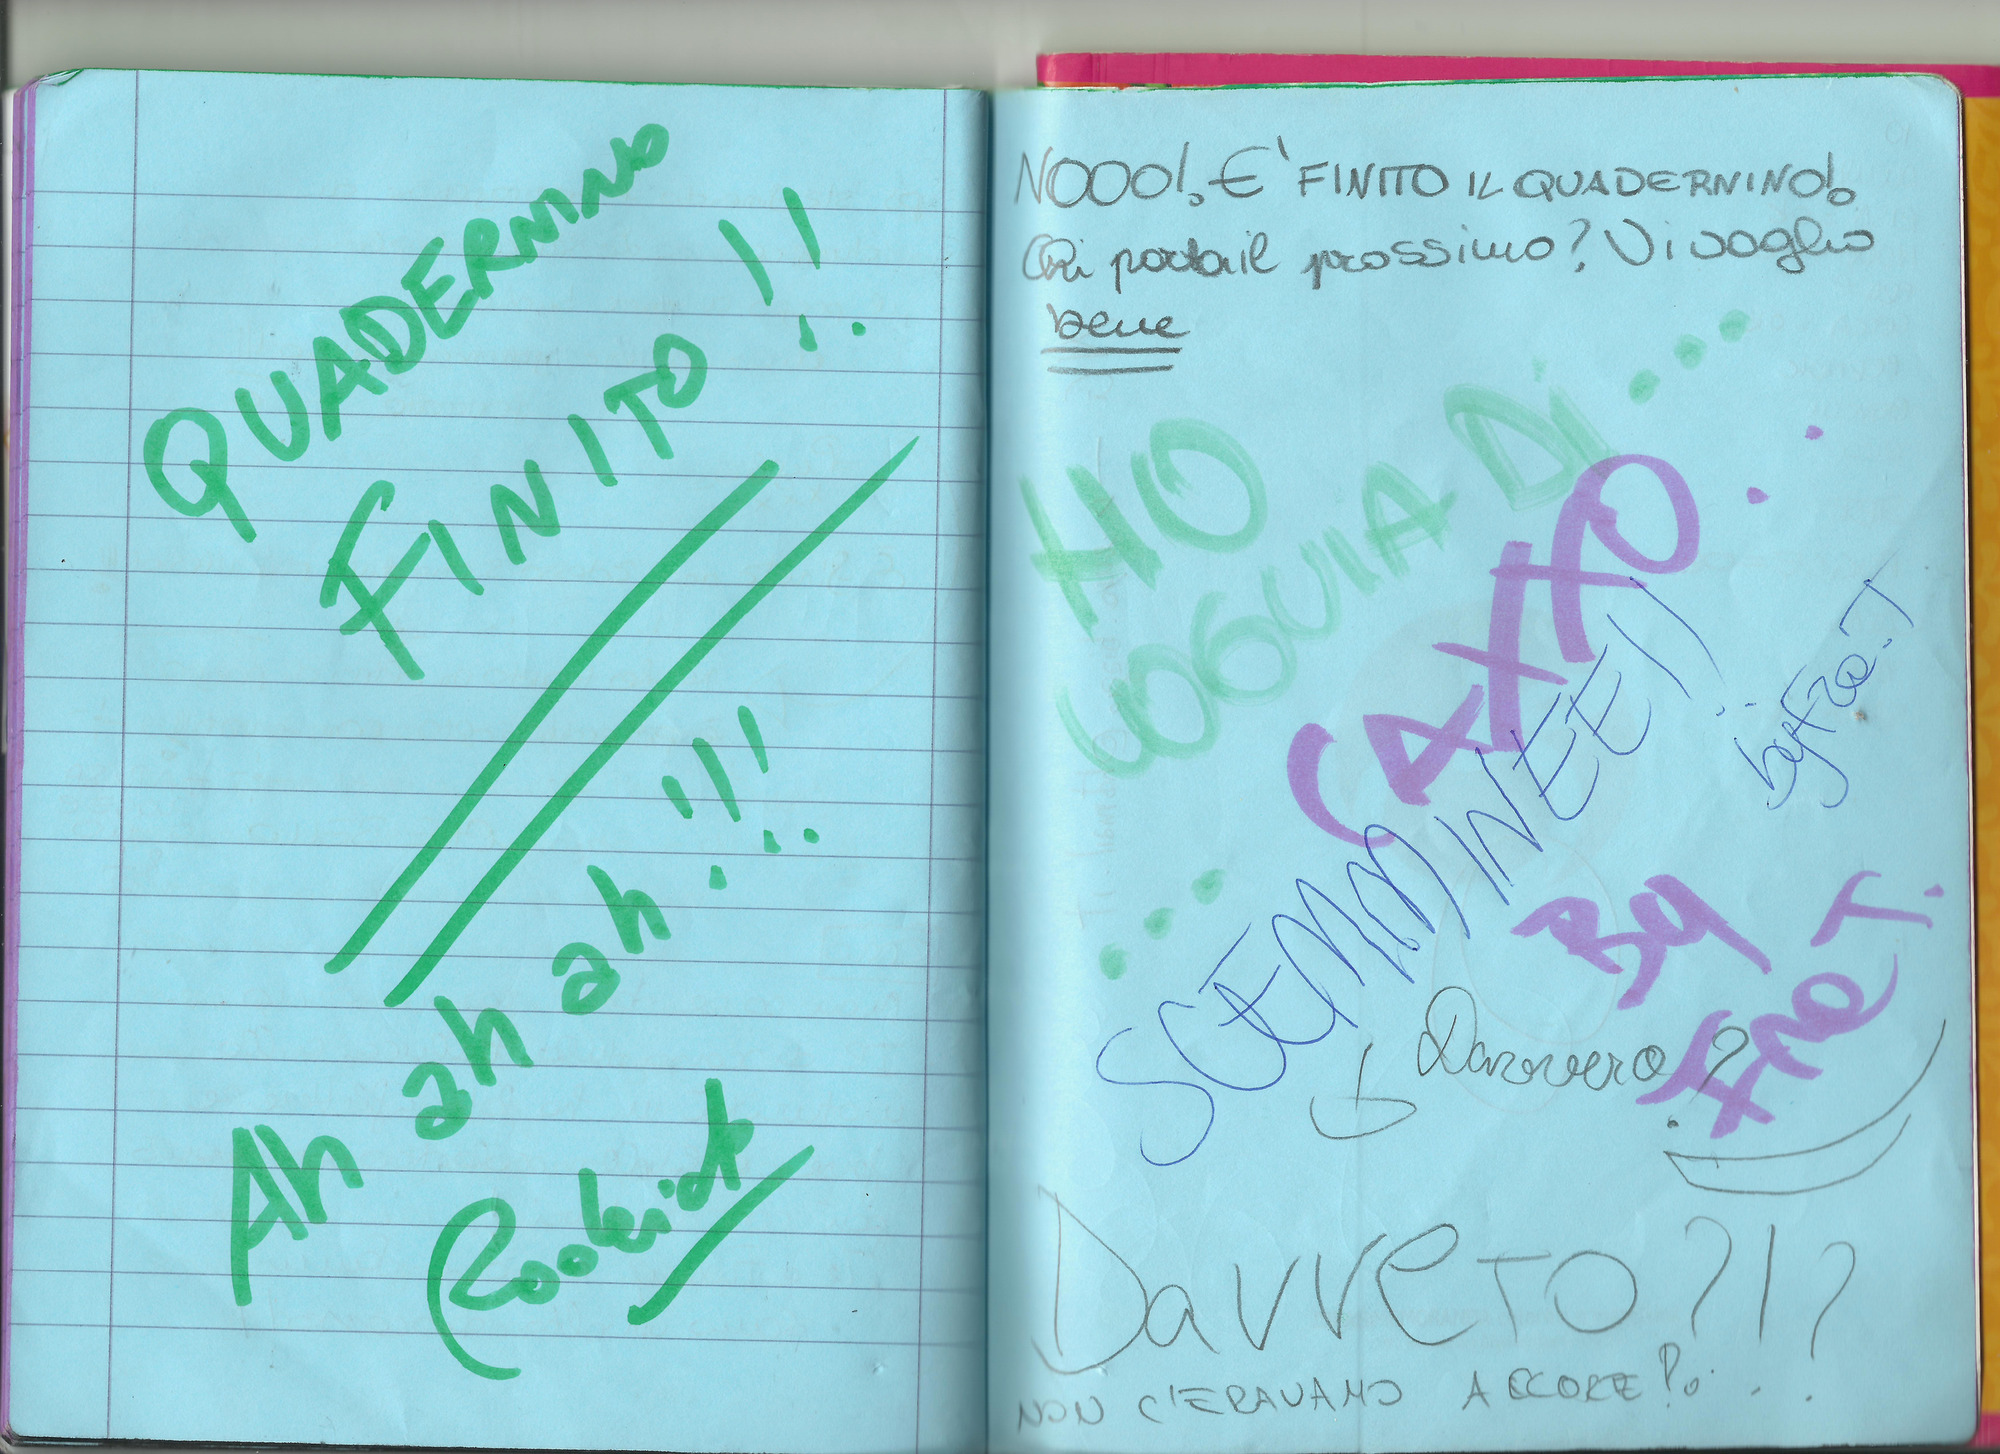 QUADERNINO
FINITO !!
Ah ah ah !!!
NOOO! E' FINITO IL QUADERNINO!
Chi porta il prossimo? Vi voglio
bene
HO
VOGLIA DI ...
... CAXXO ..
SCEMMINEE!!
by Fra.T
By
Fra T.
Davvero?
DavveTO?!?
NON C'ERAVAMO ACCORTE?! . .